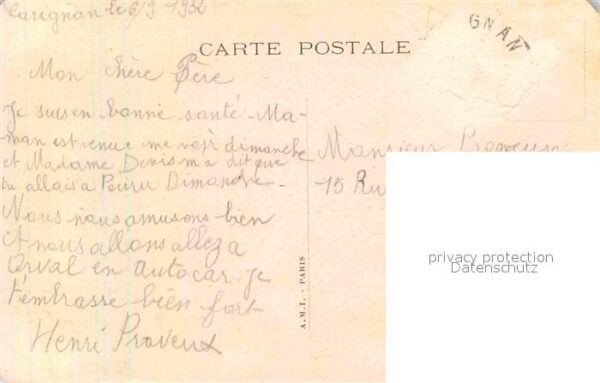 Carignan le 6/9 1932
GNAN
CARTE POSTALE
Mon chère Père
Je suis en bonne santé-Ma-
man est venue me voir dimanche
et Madame Denis m a dit que
tu allais a Pouru Dimanche-
Nous nous amusons bien
et nous allons allez a
Orval en autocar. Je
t'embrasse bien fort
Henri Proveux
Monsieur
15 Ru
A.M.I. - PARIS
privacy protection
Datenschutz